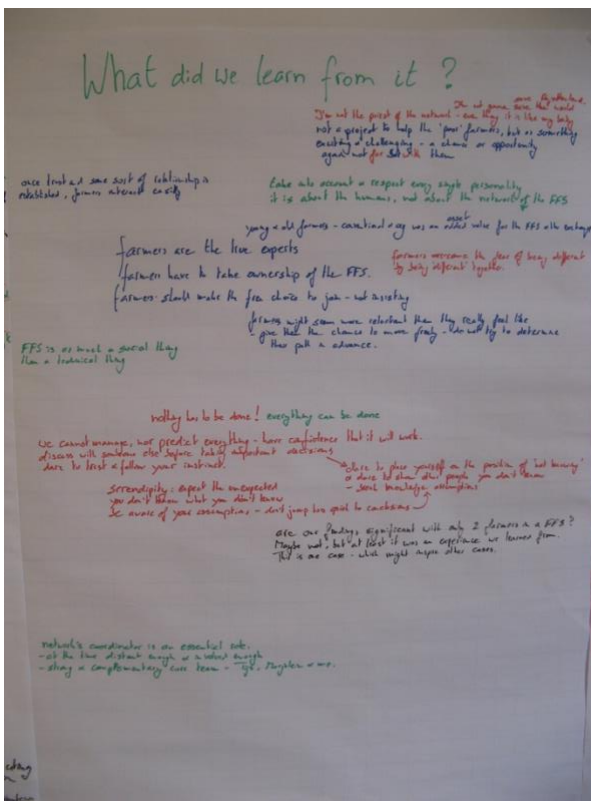 What did we learn from it ?
I'm not gonna save the world
I'm not the priest of the network - even though it is like my baby
not a project to help the 'poor' farmers, but as something
exciting & challenging - a chance or opportunity
again not for but with them
once trust and some sort of relationship is
established, farmers interact easily
take into account & respect every single personality
it is about the humans, not about the network of the FFS
asset
young & old farmers - conventional & org was an added value for the FFS
farmers are the live experts
farmers have to take ownership of the FFS.
farmers should make the free choice to join - not insisting
farmers overcome the fear of being different
by being different together.
farmers might seem more reluctant than they really feel like
- give them the chance to move freely - do not try to determine
their path in advance.
FFS is as much a social thing
than a technical thing
nothing has to be done ! everything can be done
we cannot manage, nor predict everything - have confidence that it will work.
discuss with someone else before taking important decisions
dare to trust & follow your instinct.
dare to place yourself in the position of 'not knowing'
& dare to show other people you don't know
serendipity : expect the unexpected
you don't know what you don't know
be aware of your assumptions - don't jump too quick to conclusions
are our findings significant with only 2 farmers in a FFS ?
Maybe not, but at least it was an experience we learned from.
This is one case - which might inspire other cases.
network's coordinator is an essential role.
- at the time distant enough & involved enough
- strong & complementary core team -